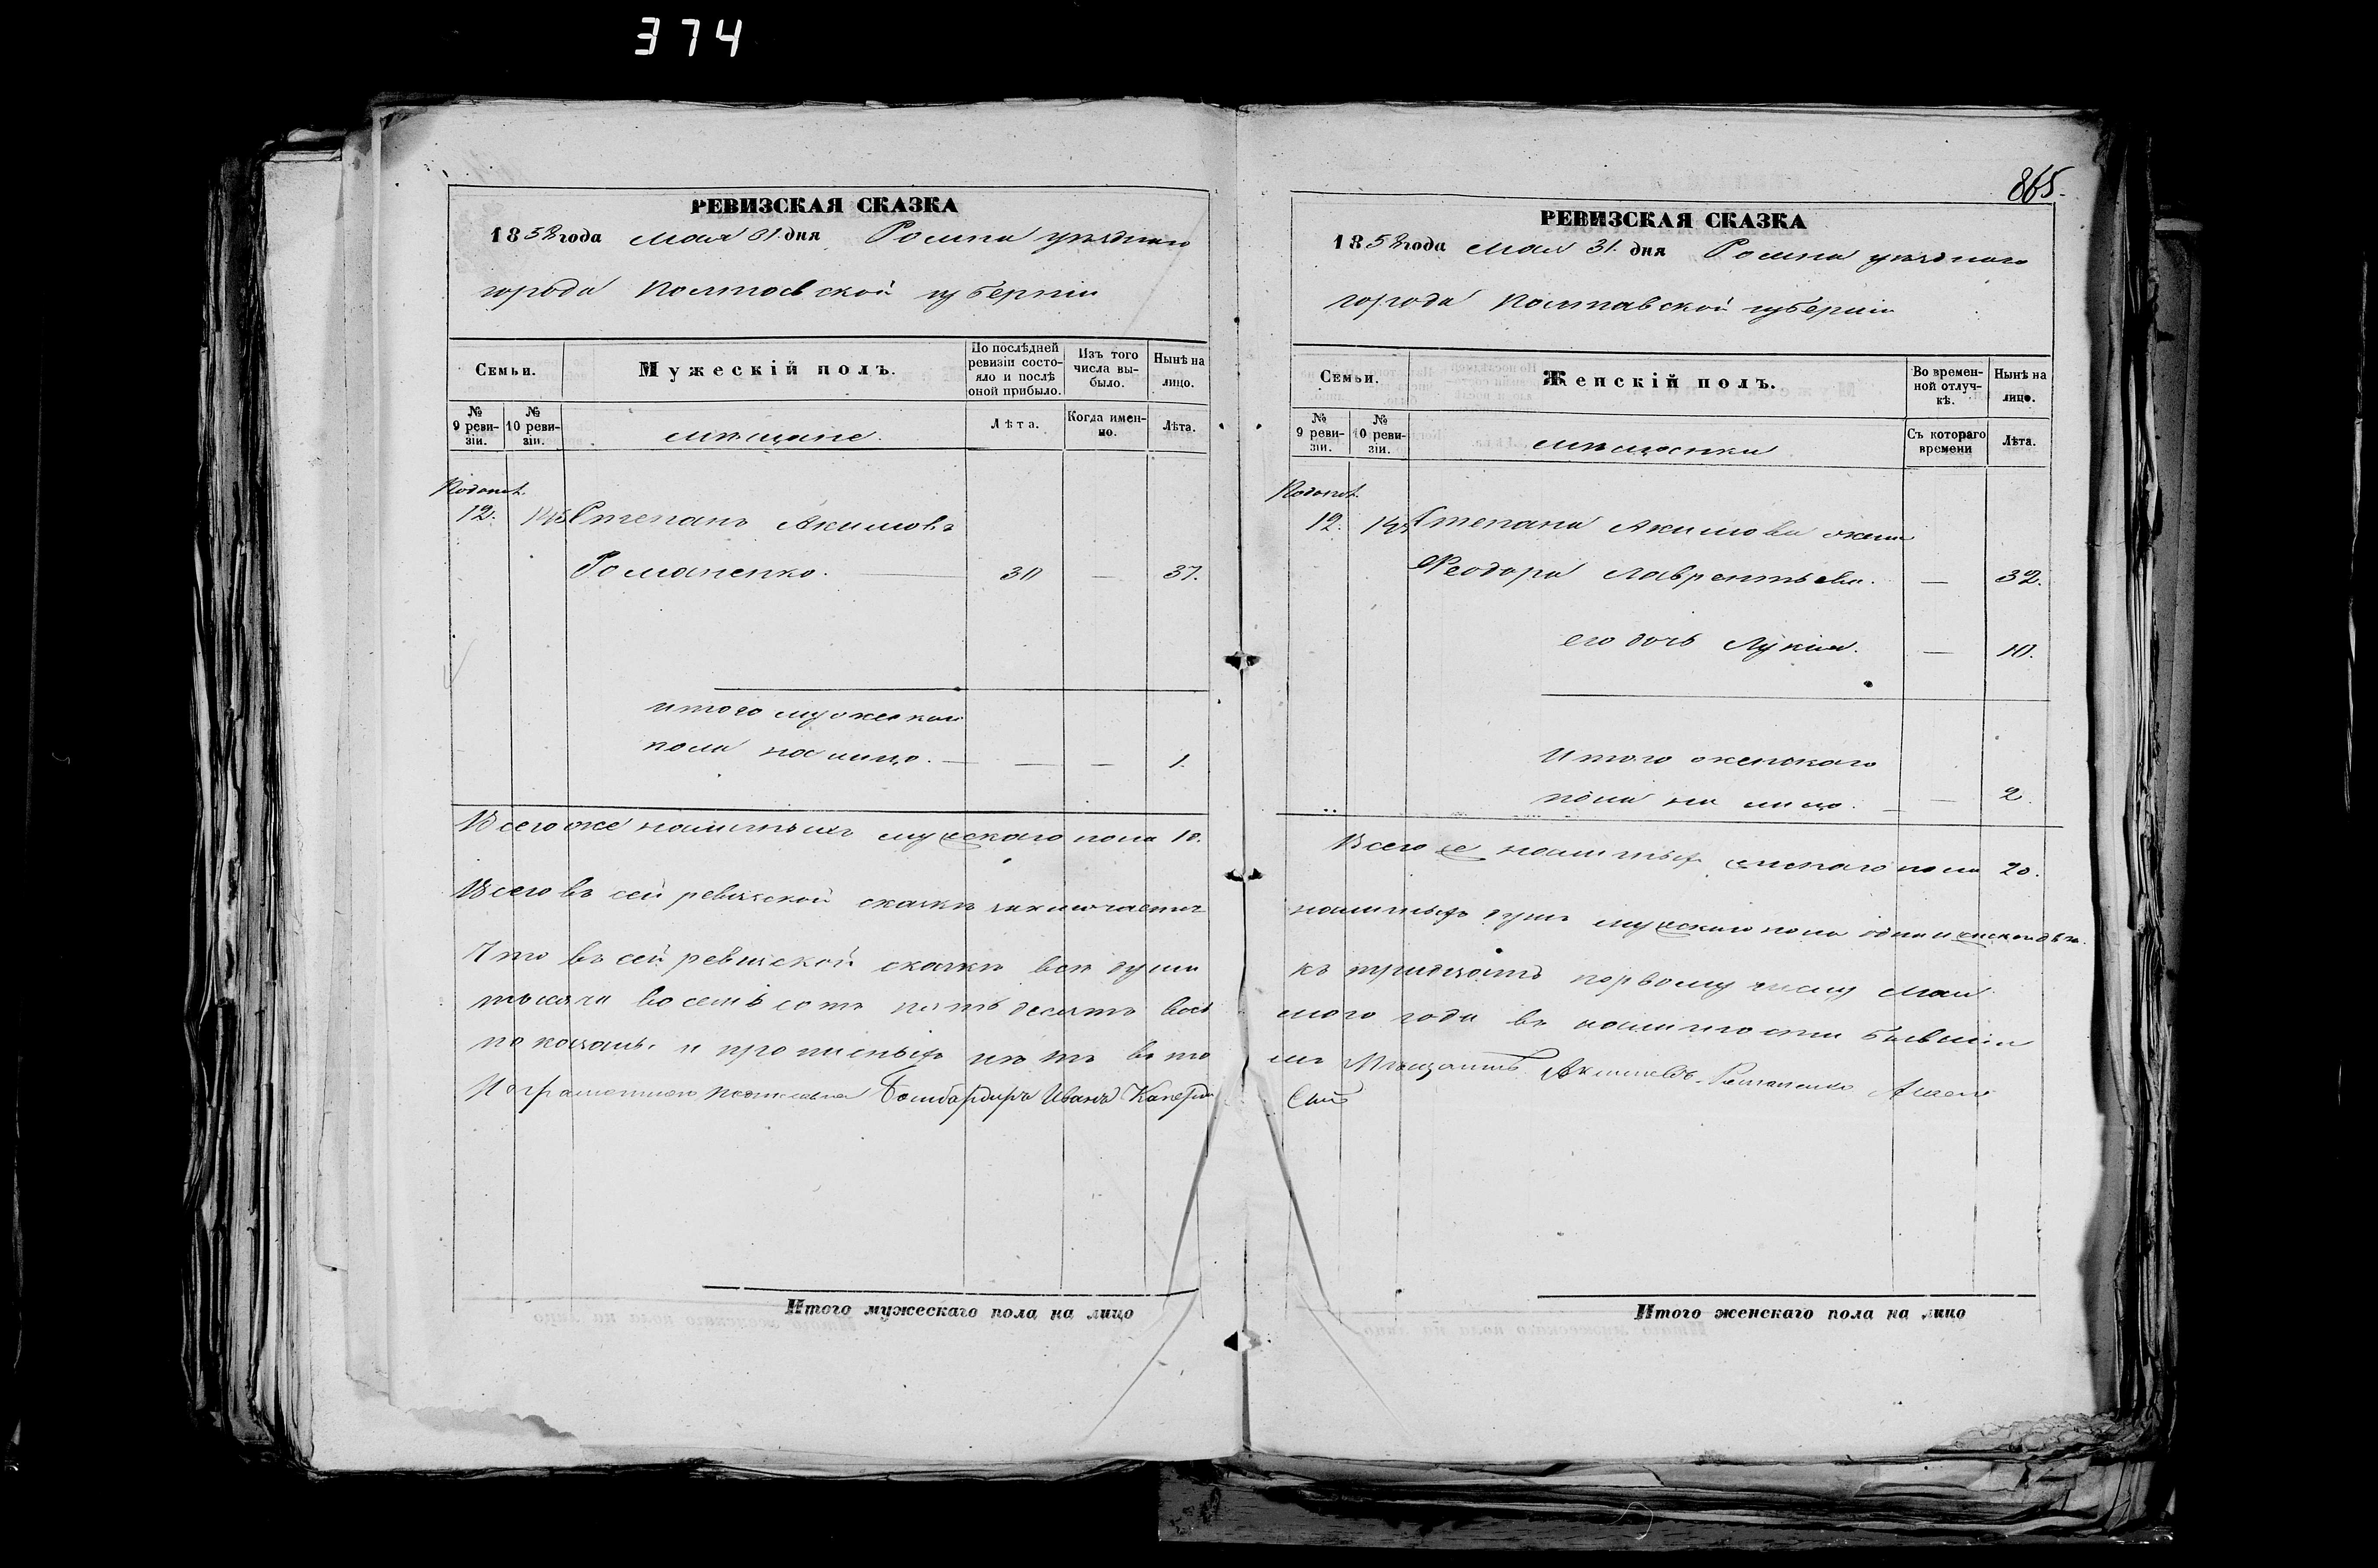 374
865.
РЕВИЗСКАЯ СКАЗКА
1858 года Мая 31 дня Ромна уѣзднаго
города Полтавской губерніи
Семьи.
Мужескій полъ.
По послѣдней ревизіи состояло и послѣ оной прибыло.
Изъ того числа выбыло.
Нынѣ на лицо.
№ 9 ревизіи.
№ 10 ревизіи.
мѣщане.
Лѣта.
Когда именно.
Лѣта.
12. Степанъ Акимовъ
Романенко. — 30 — 37.
итого мужескаго
пола на лицо. — — — 1.
Всего же наличныхъ мужескаго пола 10.
Всего въ сей ревизской сказкѣ заключается
Что въ сей ревизской сказкѣ всѣ души
тысяча восемьсотъ пятьдесятъ вось
показаны и прописныхъ нѣтъ въ то
Бомбардиръ Иванъ
РЕВИЗСКАЯ СКАЗКА
1858 года Мая 31. дня Ромна уѣзднаго
города Полтавской губерніи
Семьи.
Женскій полъ.
Во временной отлучкѣ.
Нынѣ на лицо.
№ 9 ревизіи.
№ 10 ревизіи.
мѣщанки
Съ котораго времени
Лѣта.
12. Степана Акимова жена
Феодора Лаврентьева. — 32.
его дочь Лукія. — 10.
Итого женскаго
пола на лицо. — — 2.
Всего же наличныхъ женскаго пола 20.
наличныхъ душъ мужескаго пола одна и женскаго двѣ.
къ тридцать первому числу Мая
мого года въ наличности бывшія
мъ Мѣщанинъ Акимовъ Романенко
Итого мужескаго пола на лицо
Итого женскаго пола на лицо